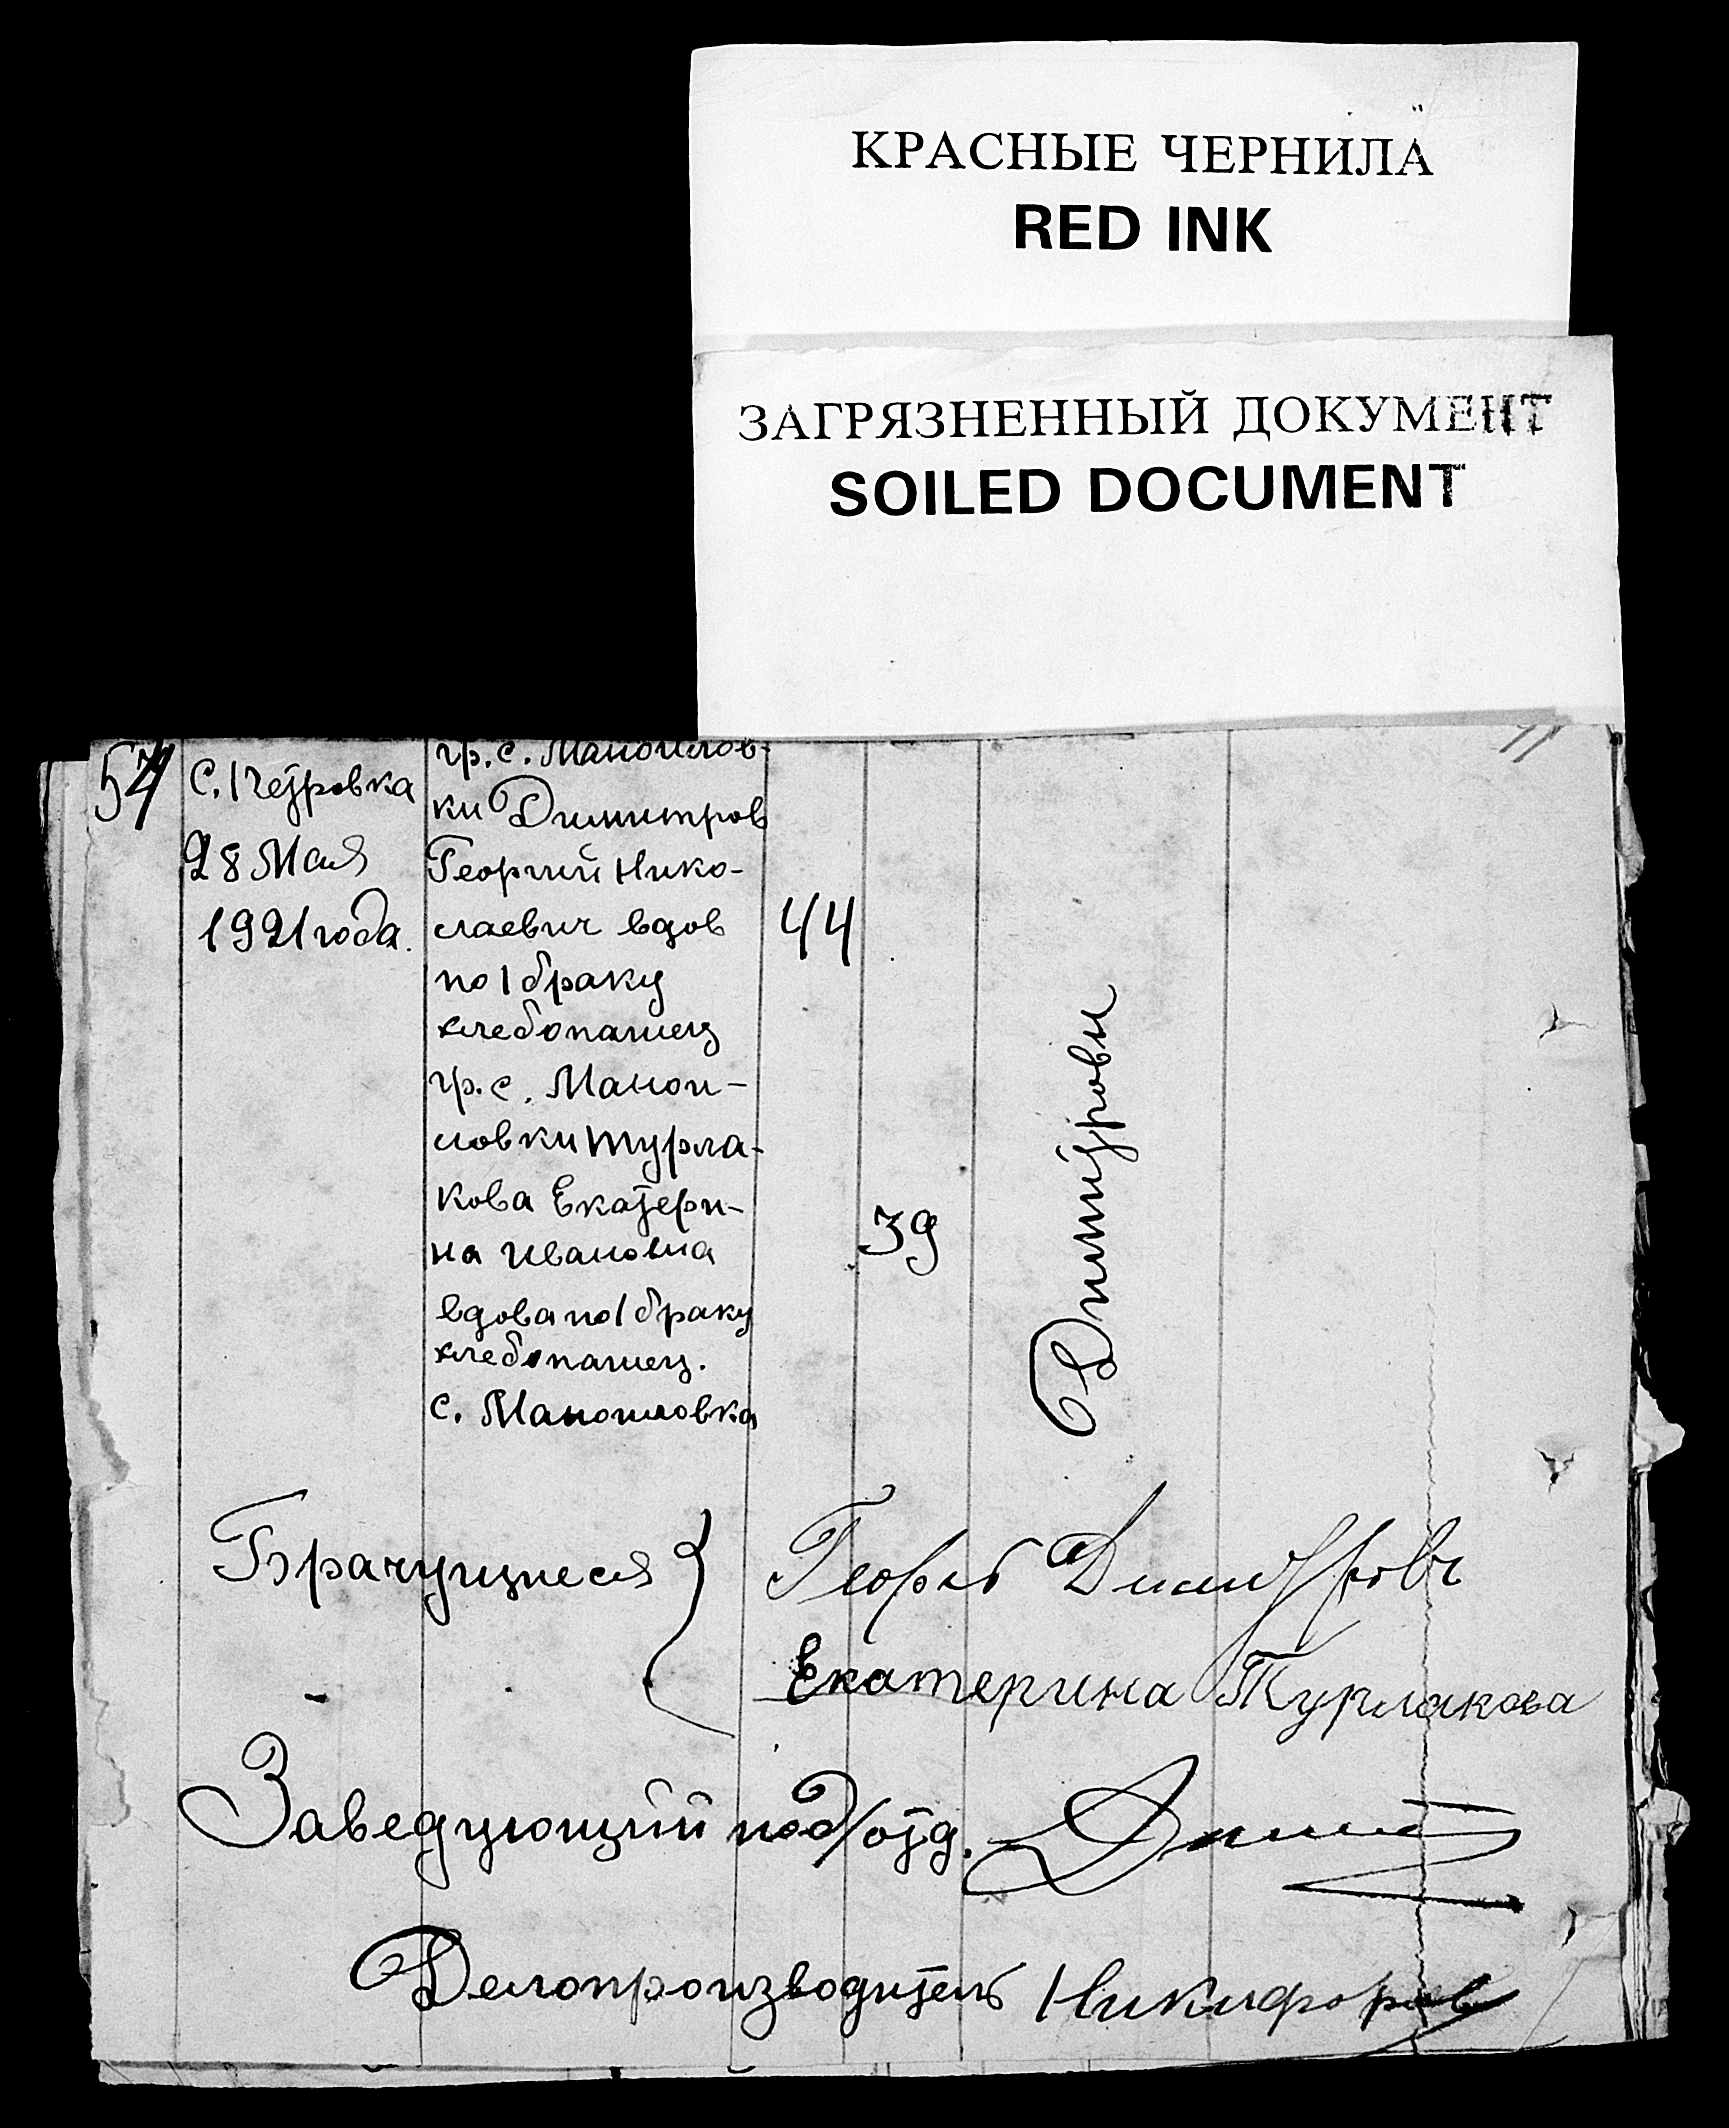 КРАСНЫЕ ЧЕРНИЛА
RED INK
ЗАГРЯЗНЕННЫЙ ДОКУМЕНТ
SOILED DOCUMENT
57
с. Петровка
28 Мая
1921 года.
гр. с. Маноилов-
ки Димитров
Георгий Нико-
лаевич вдов
по 1 браку
хлебопашец
гр. с. Манои-
ловки Турла-
кова Екатери-
на Ивановна
вдова по 1 браку
хлебопашец.
с. Маноиловка
44
39
Димитровы
Брачущиеся
Георгий Димитров
Екатерина Турлакова
Заведующий под/отд.
Делопроизводитель Никифоров